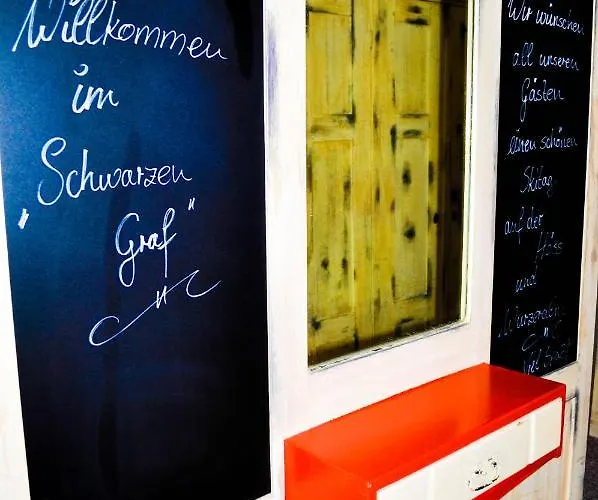 Willkommen
im
„Schwarzen
Graf"
Wir wünschen
all unseren
Gästen
einen schönen
Skitag
auf der
Höss
und
Wurzeralm
Viel Spaß